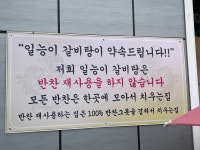 "일능이 갈비탕이 약속드립니다!!"
저희 일능이 갈비탕은
반찬 재사용을 하지 않습니다
모든 반찬은 한곳에 모아서 치우는집
반찬 재사용하는 집은 100% 반찬그릇을 겹쳐서 치우는집